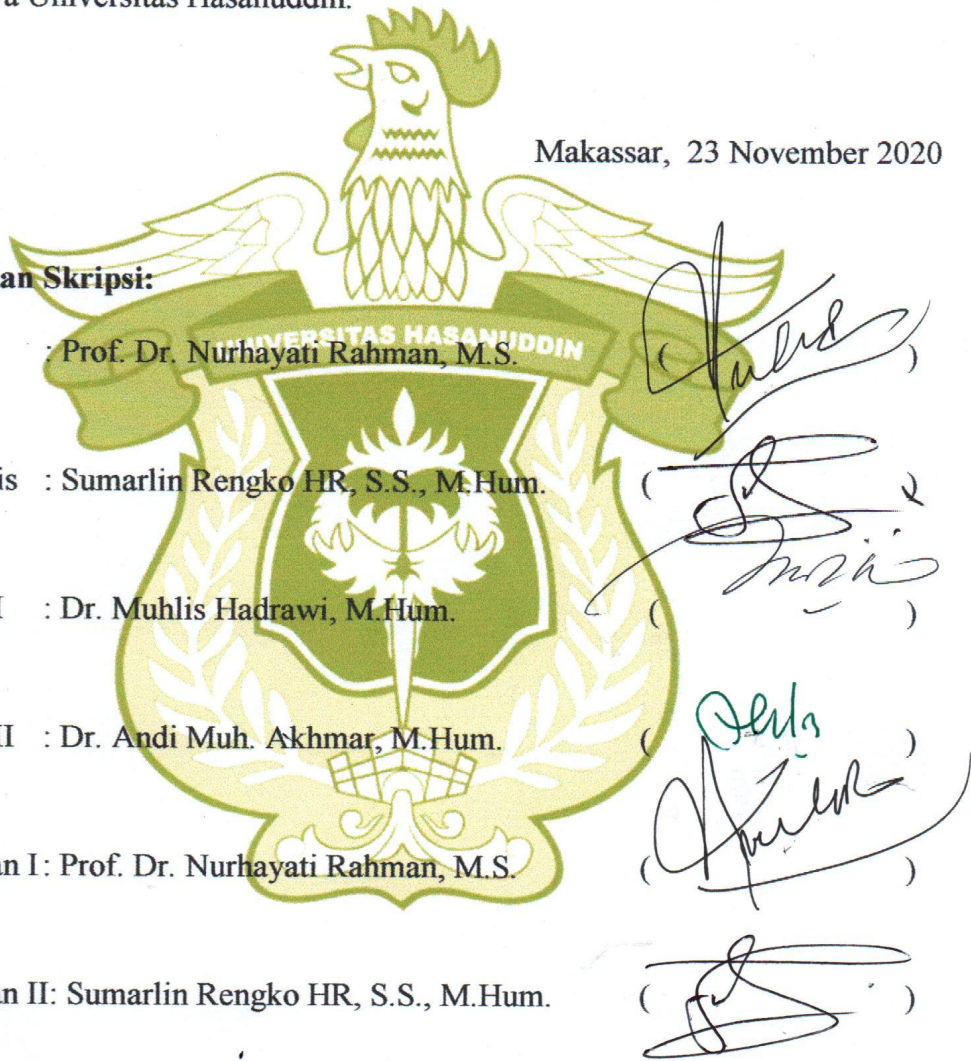 a Universitas Hasanuddin.
Makassar, 23 November 2020
an Skripsi:
UNIVERSITAS HASANUDDIN
: Prof. Dr. Nurhayati Rahman, M.S. ( )
is : Sumarlin Rengko HR, S.S., M.Hum. ( )
I : Dr. Muhlis Hadrawi, M.Hum. ( )
II : Dr. Andi Muh. Akhmar, M.Hum. ( )
an I: Prof. Dr. Nurhayati Rahman, M.S. ( )
an II: Sumarlin Rengko HR, S.S., M.Hum. ( )